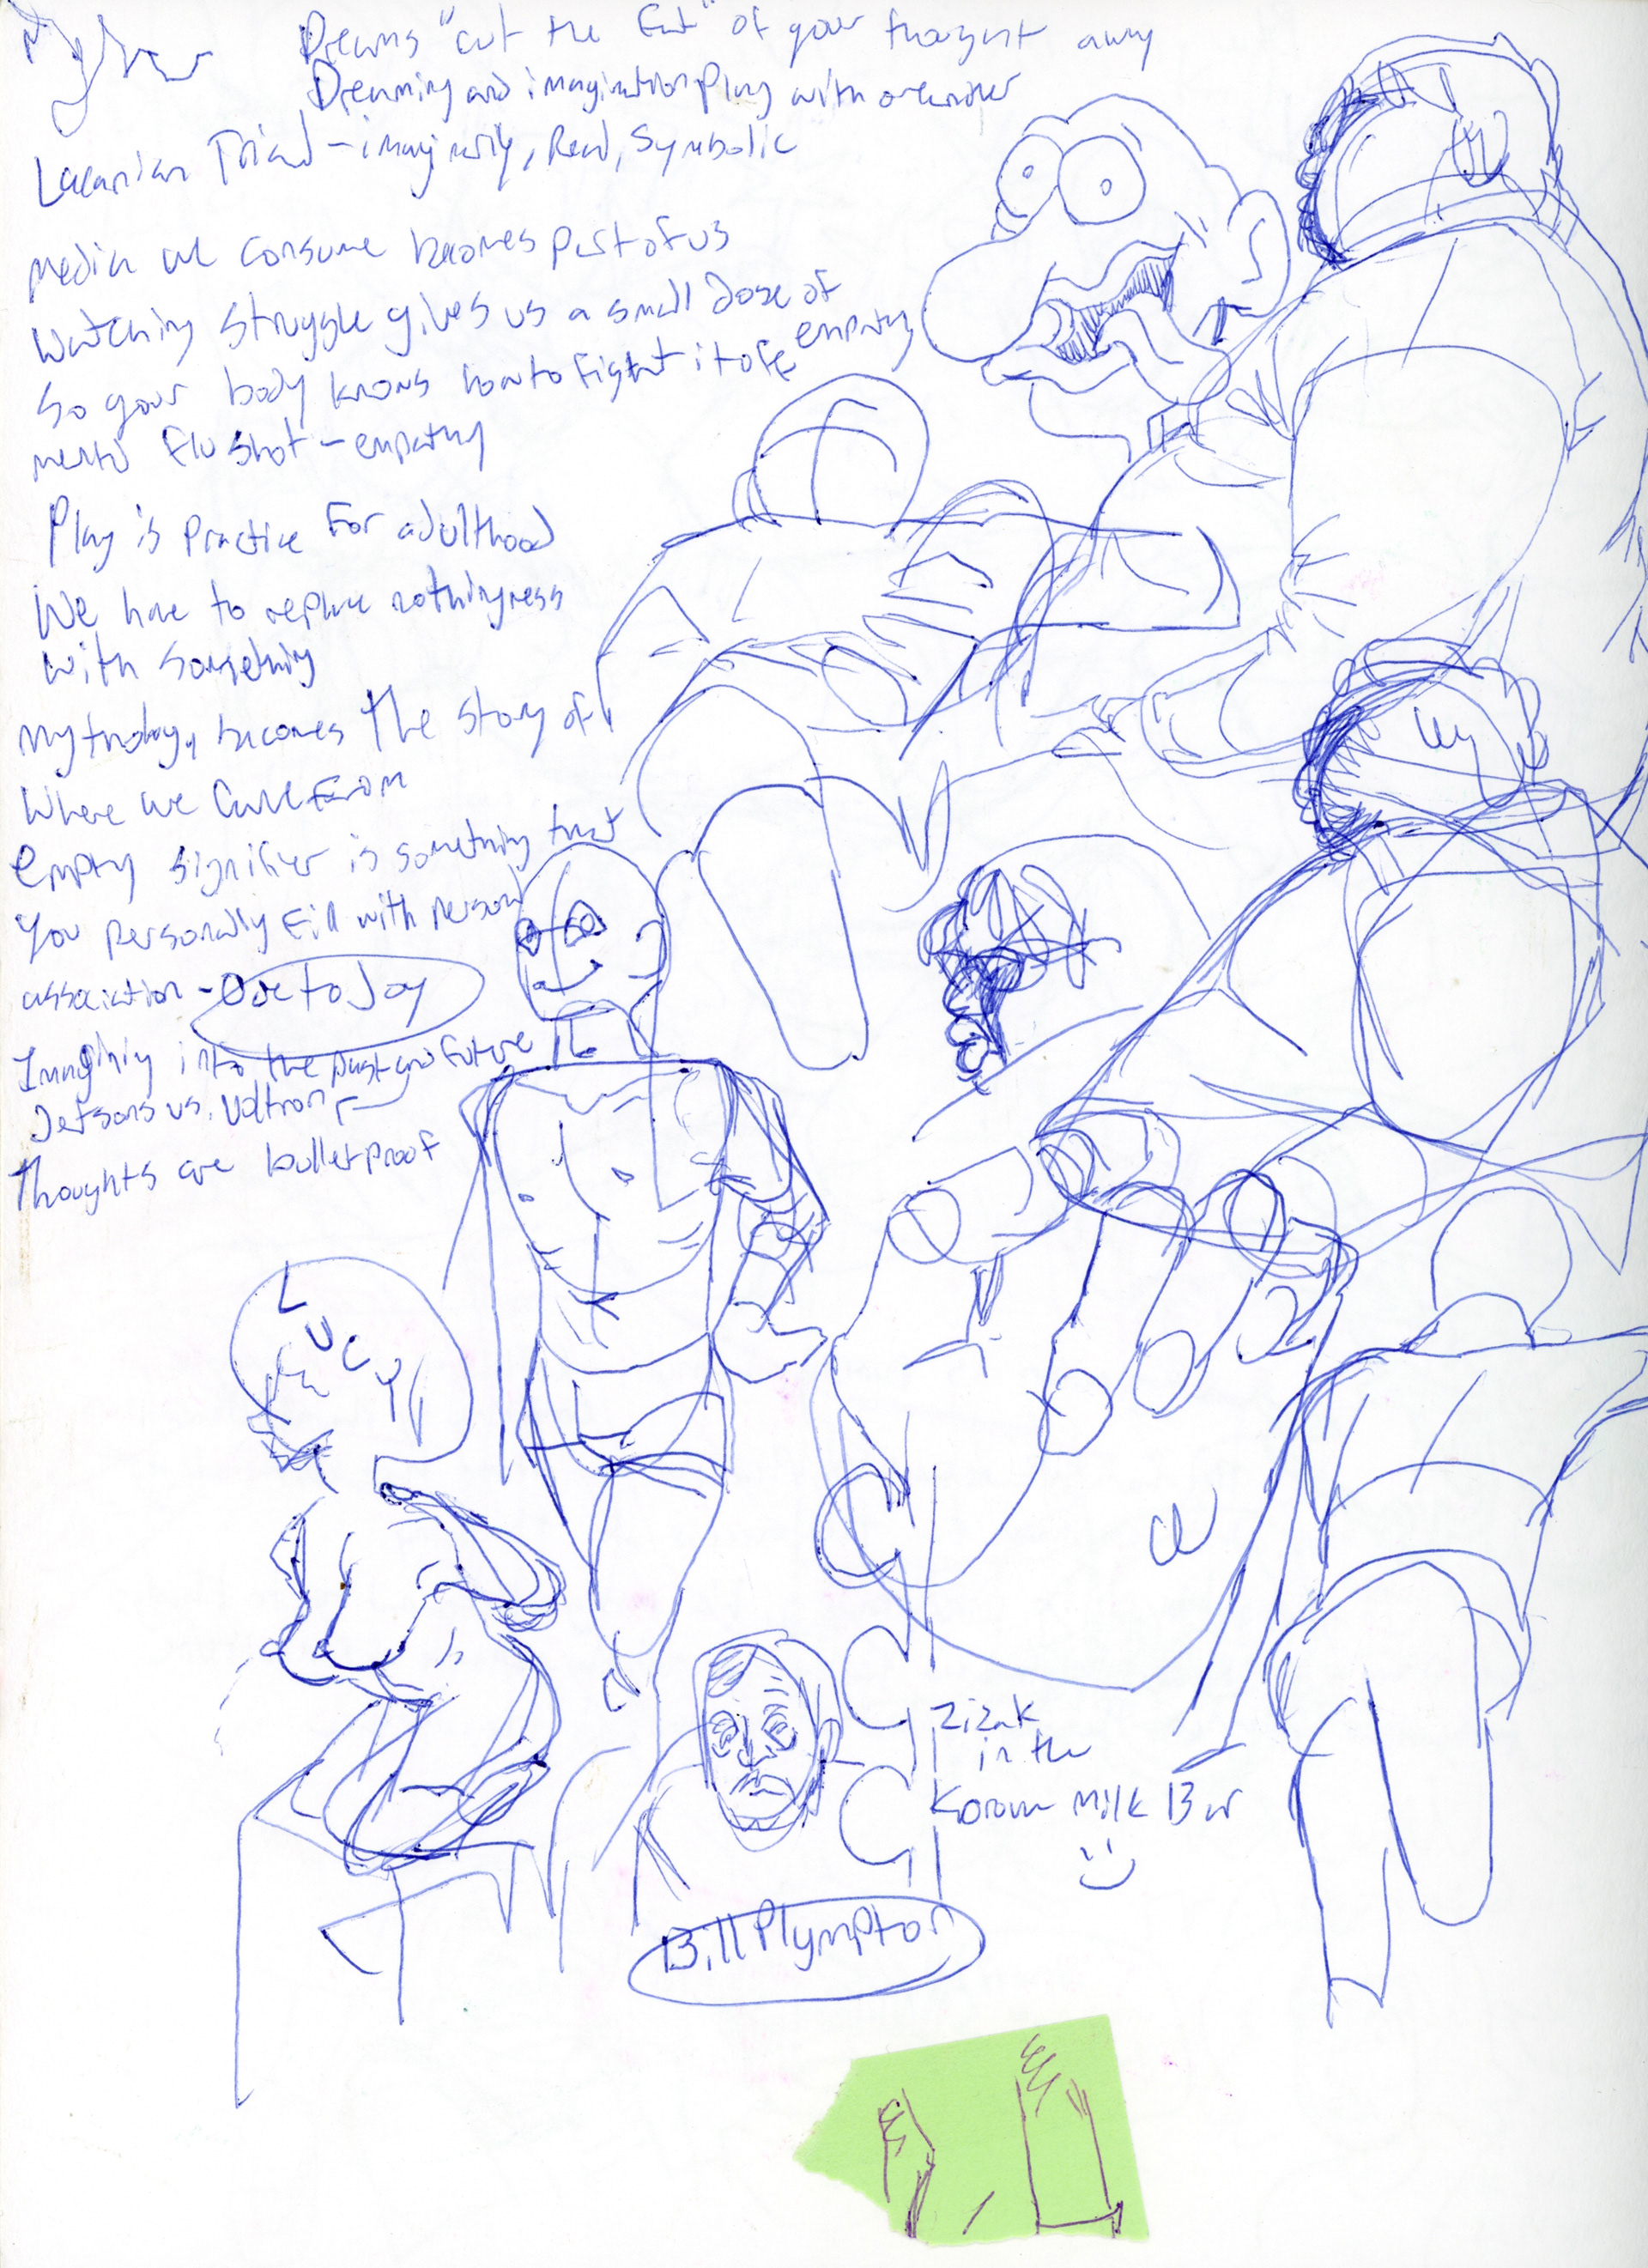 Dreams "cut the Fat" of your thought away
Dreaming and imagination Play with
Lacanian Triad - imaginary, Real, Symbolic
media we consume becomes part of us
Watching struggle gives us a small Dose of
empathy
So your body knows how to fight it off
mental flu shot - empathy
Play is Practice For adulthood
We have to replace nothingness
with something
mythology becomes the story of
Where we Came From
empty signifier is something that
You personally Fill with personal
association - Ode to Joy
Imagining into the past and Future
Jetsons vs. Voltron
Thoughts are bulletproof
LUCY
Zizak
in the
Korova Milk Bar
Bill Plympton